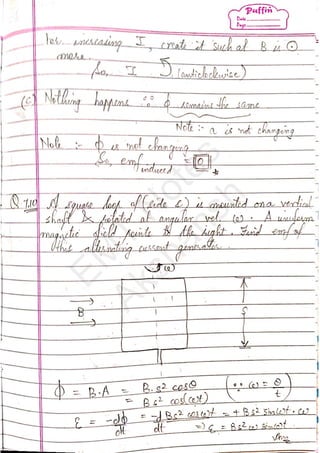 Puffin
Date
Page
for increasing I, create it such at B is ⊙
more.
So, I ↺ (anticlockwise)
(c) Nothing happens ∵ ϕ remains the same
Note :- a is not changing
Note :- ϕ is not changing
So, emf induced = 0
Q 7.10 A square loop of (side s) is mounted on a vertical
shaft & rotated at angular vel. (ω). A uniform
magnetic field points to the right. Find emf of
this alternating current generator.
(ω)
B
s
ϕ = B.A = B.s² cosθ (∵ ω = θ/t)
= Bs² cos(ωt)
ε = -dϕ/dt = -d Bs² cosωt/dt = + Bs² sinωt . ω
⇒ ε = Bs²ω sinωt
Ans